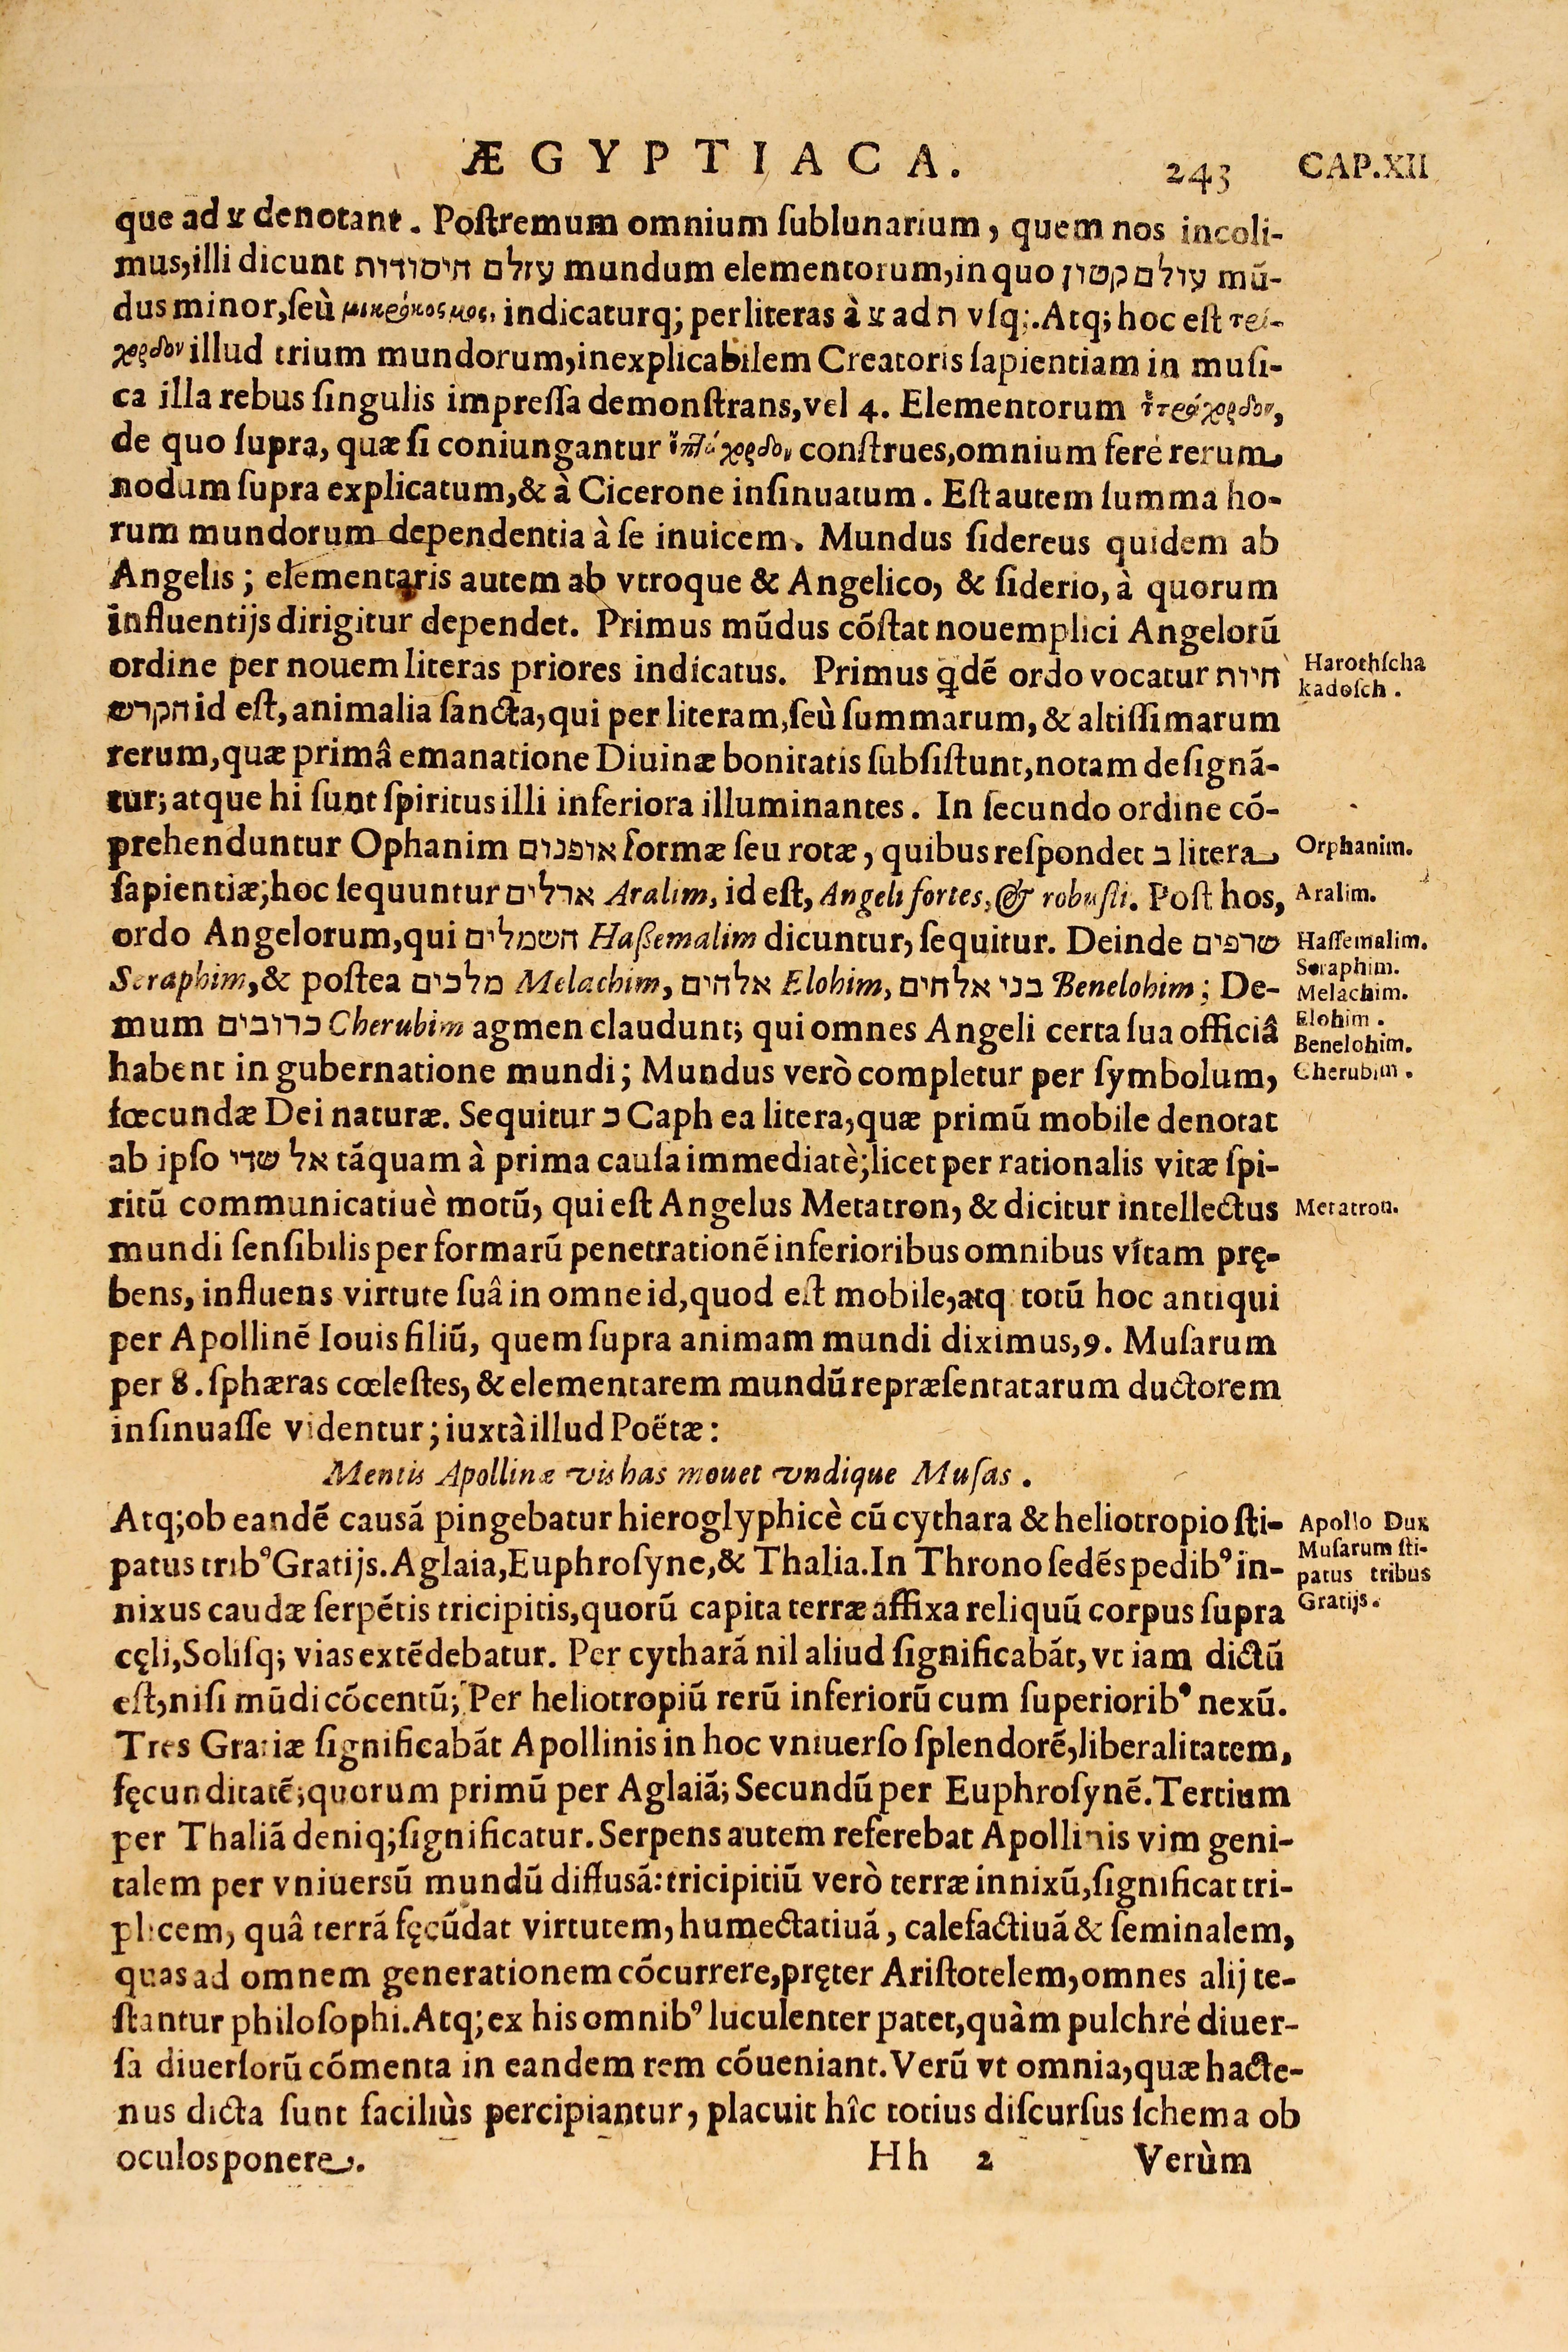 ÆGYPTIACA. 243 CAP.XII
que ad צ denotant. Poſtremum omnium ſublunarium, quem nos incoli-
mus,illi dicunt עולם היסודות mundum elementorum,in quo עולם קטון mũ-
dus minor,ſeù μικρόκοσμος, indicaturq; per literas à צ ad ת vſq;.Atq; hoc eſt τρί-
χορδον illud trium mundorum,inexplicabilem Creatoris ſapientiam in muſi-
ca illa rebus ſingulis impreſſa demonſtrans,vel 4. Elementorum τετράχορδον,
de quo ſupra, quæ ſi coniungantur ἑπτάχορδον conſtrues,omnium ferè rerum
nodum ſupra explicatum,& à Cicerone inſinuatum. Eſt autem ſumma ho-
rum mundorum dependentia à ſe inuicem. Mundus ſidereus quidem ab
Angelis; elementaris autem ab vtroque & Angelico, & ſiderio, à quorum
influentijs dirigitur dependet. Primus mũdus cõſtat nouemplici Angelorũ
ordine per nouem literas priores indicatus. Primus q̃dẽ ordo vocatur חיות
הקרש id eſt, animalia ſancta,qui per literam,ſeù ſummarum, & altiſſimarum
rerum,quæ primâ emanatione Diuinæ bonitatis ſubſiſtunt,notam deſignã-
tur; atque hi ſunt ſpiritus illi inferiora illuminantes. In ſecundo ordine cõ-
prehenduntur Ophanim אופנים formæ ſeu rotæ, quibus reſpondet ב litera
ſapientiæ;hoc ſequuntur ארלים Aralim, id eſt, Angeli fortes, & robuſti. Poſt hos,
ordo Angelorum,qui חשמלים Haßemalim dicuntur, ſequitur. Deinde שרפים
Seraphim,& poſtea מלכים Melachim, אלהים Elohim, בני אלהים Benelohim; De-
mum כרובים Cherubim agmen claudunt; qui omnes Angeli certa ſua officiâ
habent in gubernatione mundi; Mundus verò completur per ſymbolum,
fœcundæ Dei naturæ. Sequitur כ Caph ea litera,quæ primũ mobile denotat
ab ipſo אל שדי tãquam à prima cauſa immediatè;licet per rationalis vitæ ſpi-
ritũ communicatiuè motũ, qui eſt Angelus Metatron, & dicitur intellectus
mundi ſenſibilis per formarũ penetrationẽ inferioribus omnibus vitam prę-
bens, influens virtute ſuâ in omne id,quod eſt mobile,atq totũ hoc antiqui
per Apollinẽ Iouis filiũ, quem ſupra animam mundi diximus,9. Muſarum
per 8. ſphæras cœleſtes, & elementarem mundũ repræſentatarum ductorem
inſinuaſſe videntur; iuxtà illud Poëtæ:
Mentis Apollinæ vis has mouet vndique Muſas.
Atq;ob eandẽ causã pingebatur hieroglyphicè cũ cythara & heliotropio ſti-
patus tribꝰ Gratijs.Aglaia,Euphroſyne,& Thalia.In Throno ſedẽs pedibꝰ in-
nixus caudæ ſerpẽtis tricipitis,quorũ capita terræ affixa reliquũ corpus ſupra
cęli,Soliſq; vias extẽdebatur. Per cytharã nil aliud ſignificabãt, vt iam dictũ
eſt,niſi mũdi cõcentũ; Per heliotropiũ rerũ inferiorũ cum ſuperioribꝰ nexũ.
Tres Gratiæ ſignificabãt Apollinis in hoc vniuerſo ſplendorẽ,liberalitatem,
fęcunditatẽ;quorum primũ per Aglaiã; Secundũ per Euphroſynẽ.Tertium
per Thaliã deniq;ſignificatur.Serpens autem referebat Apollinis vim geni-
talem per vniuersũ mundũ diffusã:tricipitiũ verò terræ innixũ,ſignificat tri-
plicem, quâ terrã fęcũdat virtutem, humectatiuã, calefactiuã & ſeminalem,
quas ad omnem generationem cõcurrere,pręter Ariſtotelem,omnes alij te-
ſtantur philoſophi.Atq;ex his omnibꝰ luculenter patet,quàm pulchré diuer-
ſa diuerſorũ cõmenta in eandem rem cõueniant.Verũ vt omnia,quæ hacte-
nus dicta ſunt faciliùs percipiantur, placuit hîc totius diſcurſus ſchema ob
oculos ponere.
Hh 2 Verùm
Harothſcha
kadoſch.
Orphanim.
Aralim.
Haſſemalim.
Seraphim.
Melachim.
Elohim.
Benelohim.
Cherubim.
Metatron.
Apollo Dux
Muſarum ſti-
patus tribus
Gratijs.